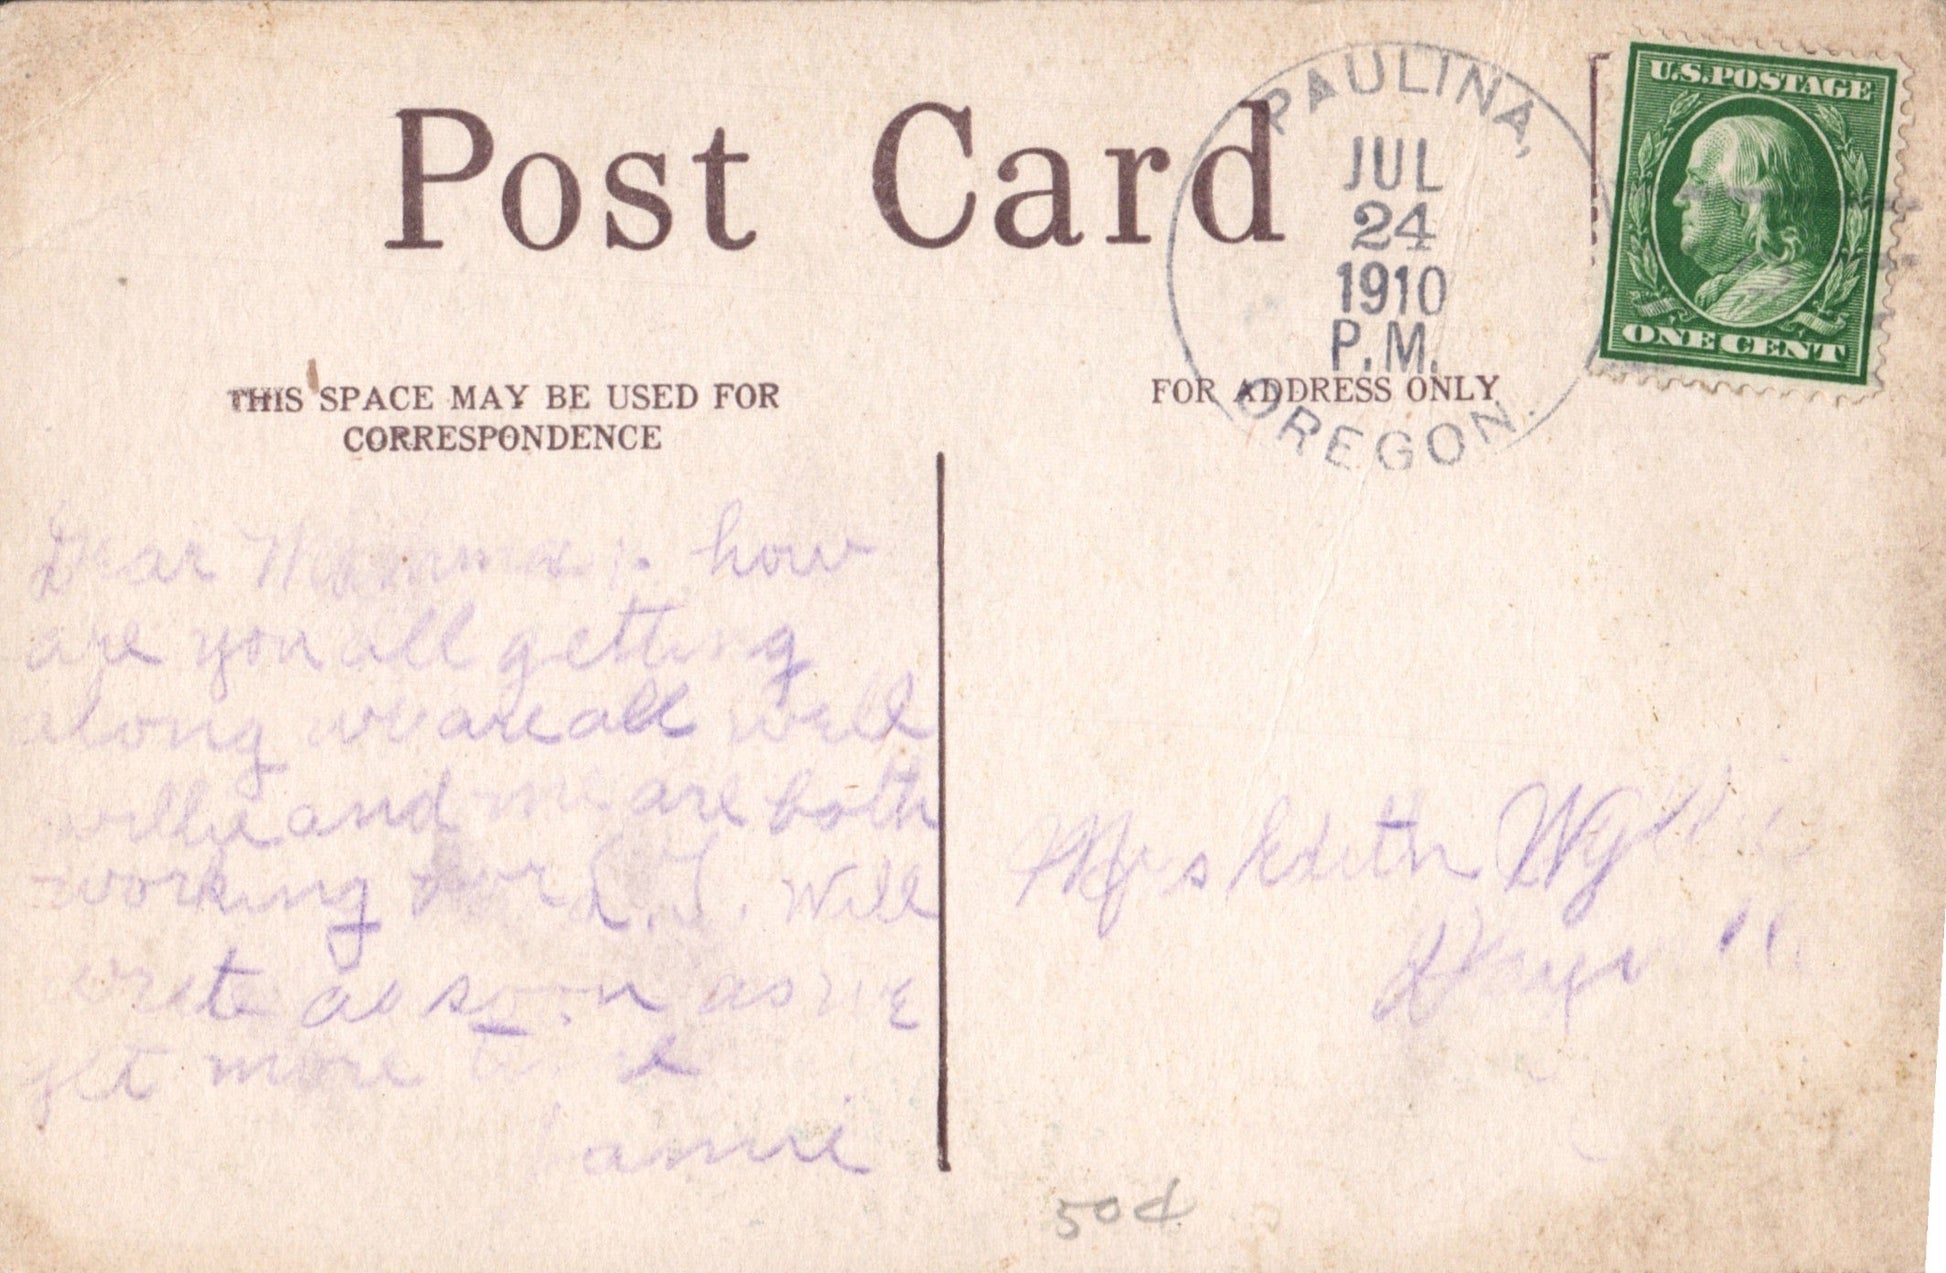 Post Card
PAULINA,
JUL
24
1910
P.M.
OREGON.
U.S. POSTAGE
ONE CENT
THIS SPACE MAY BE USED FOR
CORRESPONDENCE
FOR ADDRESS ONLY
Dear Mamma how
are you all getting
along we are all well
willie and me are both
working for L.T. Will
write as soon as we
get more time
Mrs Edith Wyllie
50¢